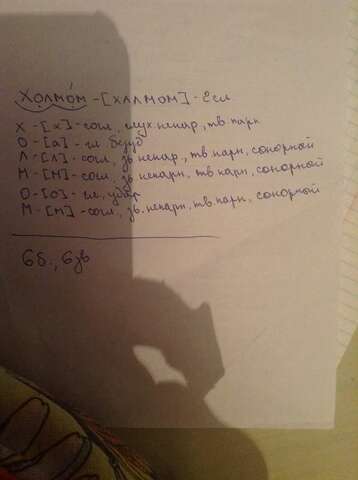 Холмо́м - [халмом] - 2 сл
Х - [х] - согл., глух. непар., тв. парн
О - [а] - гл. безуд
Л - [л] - согл., зв. непар., тв. парн., сонорной
М - [м] - согл., зв. непарн., тв. парн., сонорной
О - [о] - гл., удар
М - [м] - согл., зв. непарн., тв. парн., сонорный
6 б., 6 зв